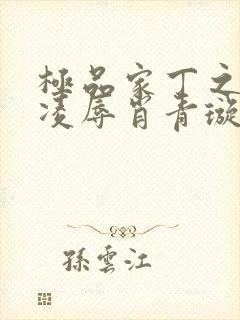 極品家丁之
凌辱肖青璇
孫雲江